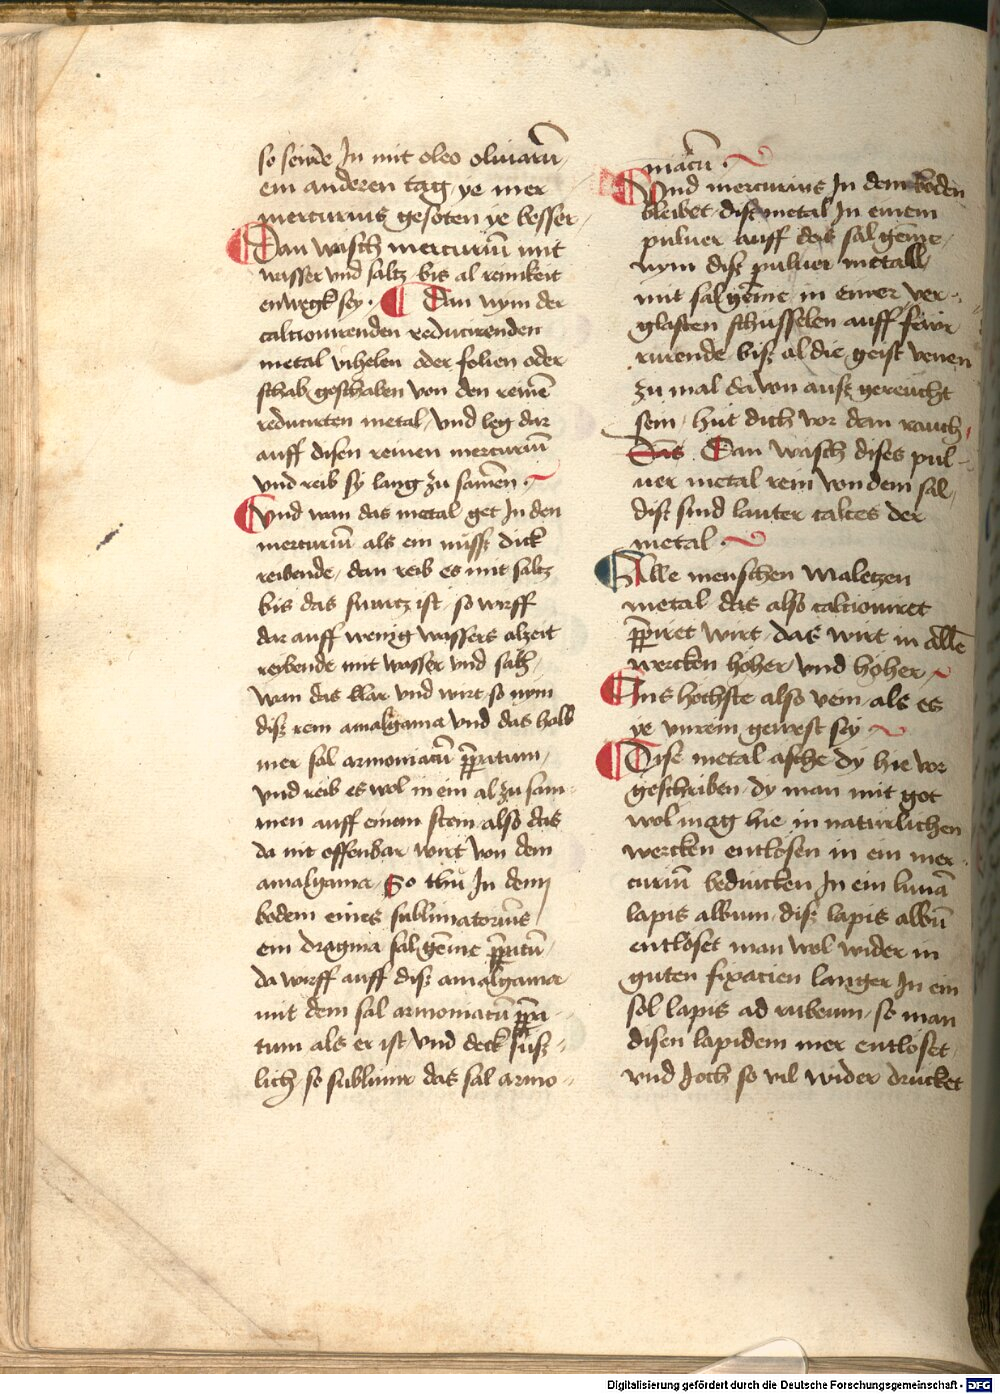 so seude Jn mit oleo oliuarū
ein anderen tag ye mer
mercurius gesoten ye besser
Dan wasch mercuriū mit
wasser vnd saltz bis al reinikeit
enwegk sey · Dan nym der
calcionirenden reducirenden
metal vihelen oder folien oder
schab geschaben von den reinē
reducirten metal / vnd leg dar
auff disen reinen mercuriū
vnd reib sy lang zu samen ·
Vnd wan das metal get Jn den
mercuriū als ein müsß dick
reibende / dan reib es mit saltz
bis das swartz ist / so wirff
dar auff wenig wassers alzeit
reibende mit wasser vnd saltz /
wan das klar vnd wirt so nym
disz rein amalgama vnd das halb
mer sal armoniacū ppratum /
vnd reib es wol in ein al zu sam-
men auff einem stein also das
da nit offenbar wirt von dem
amalgama / So thů Jn dem
bodem eines sublimatoriūs
ein dragma sal gēme ppratū /
da wirff auff disz amalgama
mit dem sal armoniacū ppra-
tum als er ist / vnd deck süsz-
lich so sublimir das sal armo-
niacū ·
Vnd mercurius Jn dem boden
bleibet disz metal Jn einem
puluer auff das sal geme /
nym disz puluer metall
mit sal gēme in einer ver-
glasten schusselen auff feur
rurende bisz al die geist venen
zu mal da von ausz gereucht
sein / hut dich vor dem rauch
Das Dan wasch dises pul-
uer metal rein von dem sal /
disz sind lauter calces der
metal ·
Alle menschen maletzen
metal das also calcioniret
ppiret wirt / das wirt in allē
wercken hoher vnd hoher
Ains hochste also vein / als es
ye vnrein gewest sey
Dise metal asche dy hie vor
geschriben / dy man mit got
wol mag hie in naturlichen
wercken entlosen in ein mer-
curiū bedrucken Jn ein lunā
lapis album / disz lapis albū
entloset man wol wider in
guten fixacien langer Jn ein
sol lapis ad rubeum / so man
disen lapidem mer entloset
vnd Joch so vil wider drucket
Digitalisierung gefördert durch die Deutsche Forschungsgemeinschaft - DFG